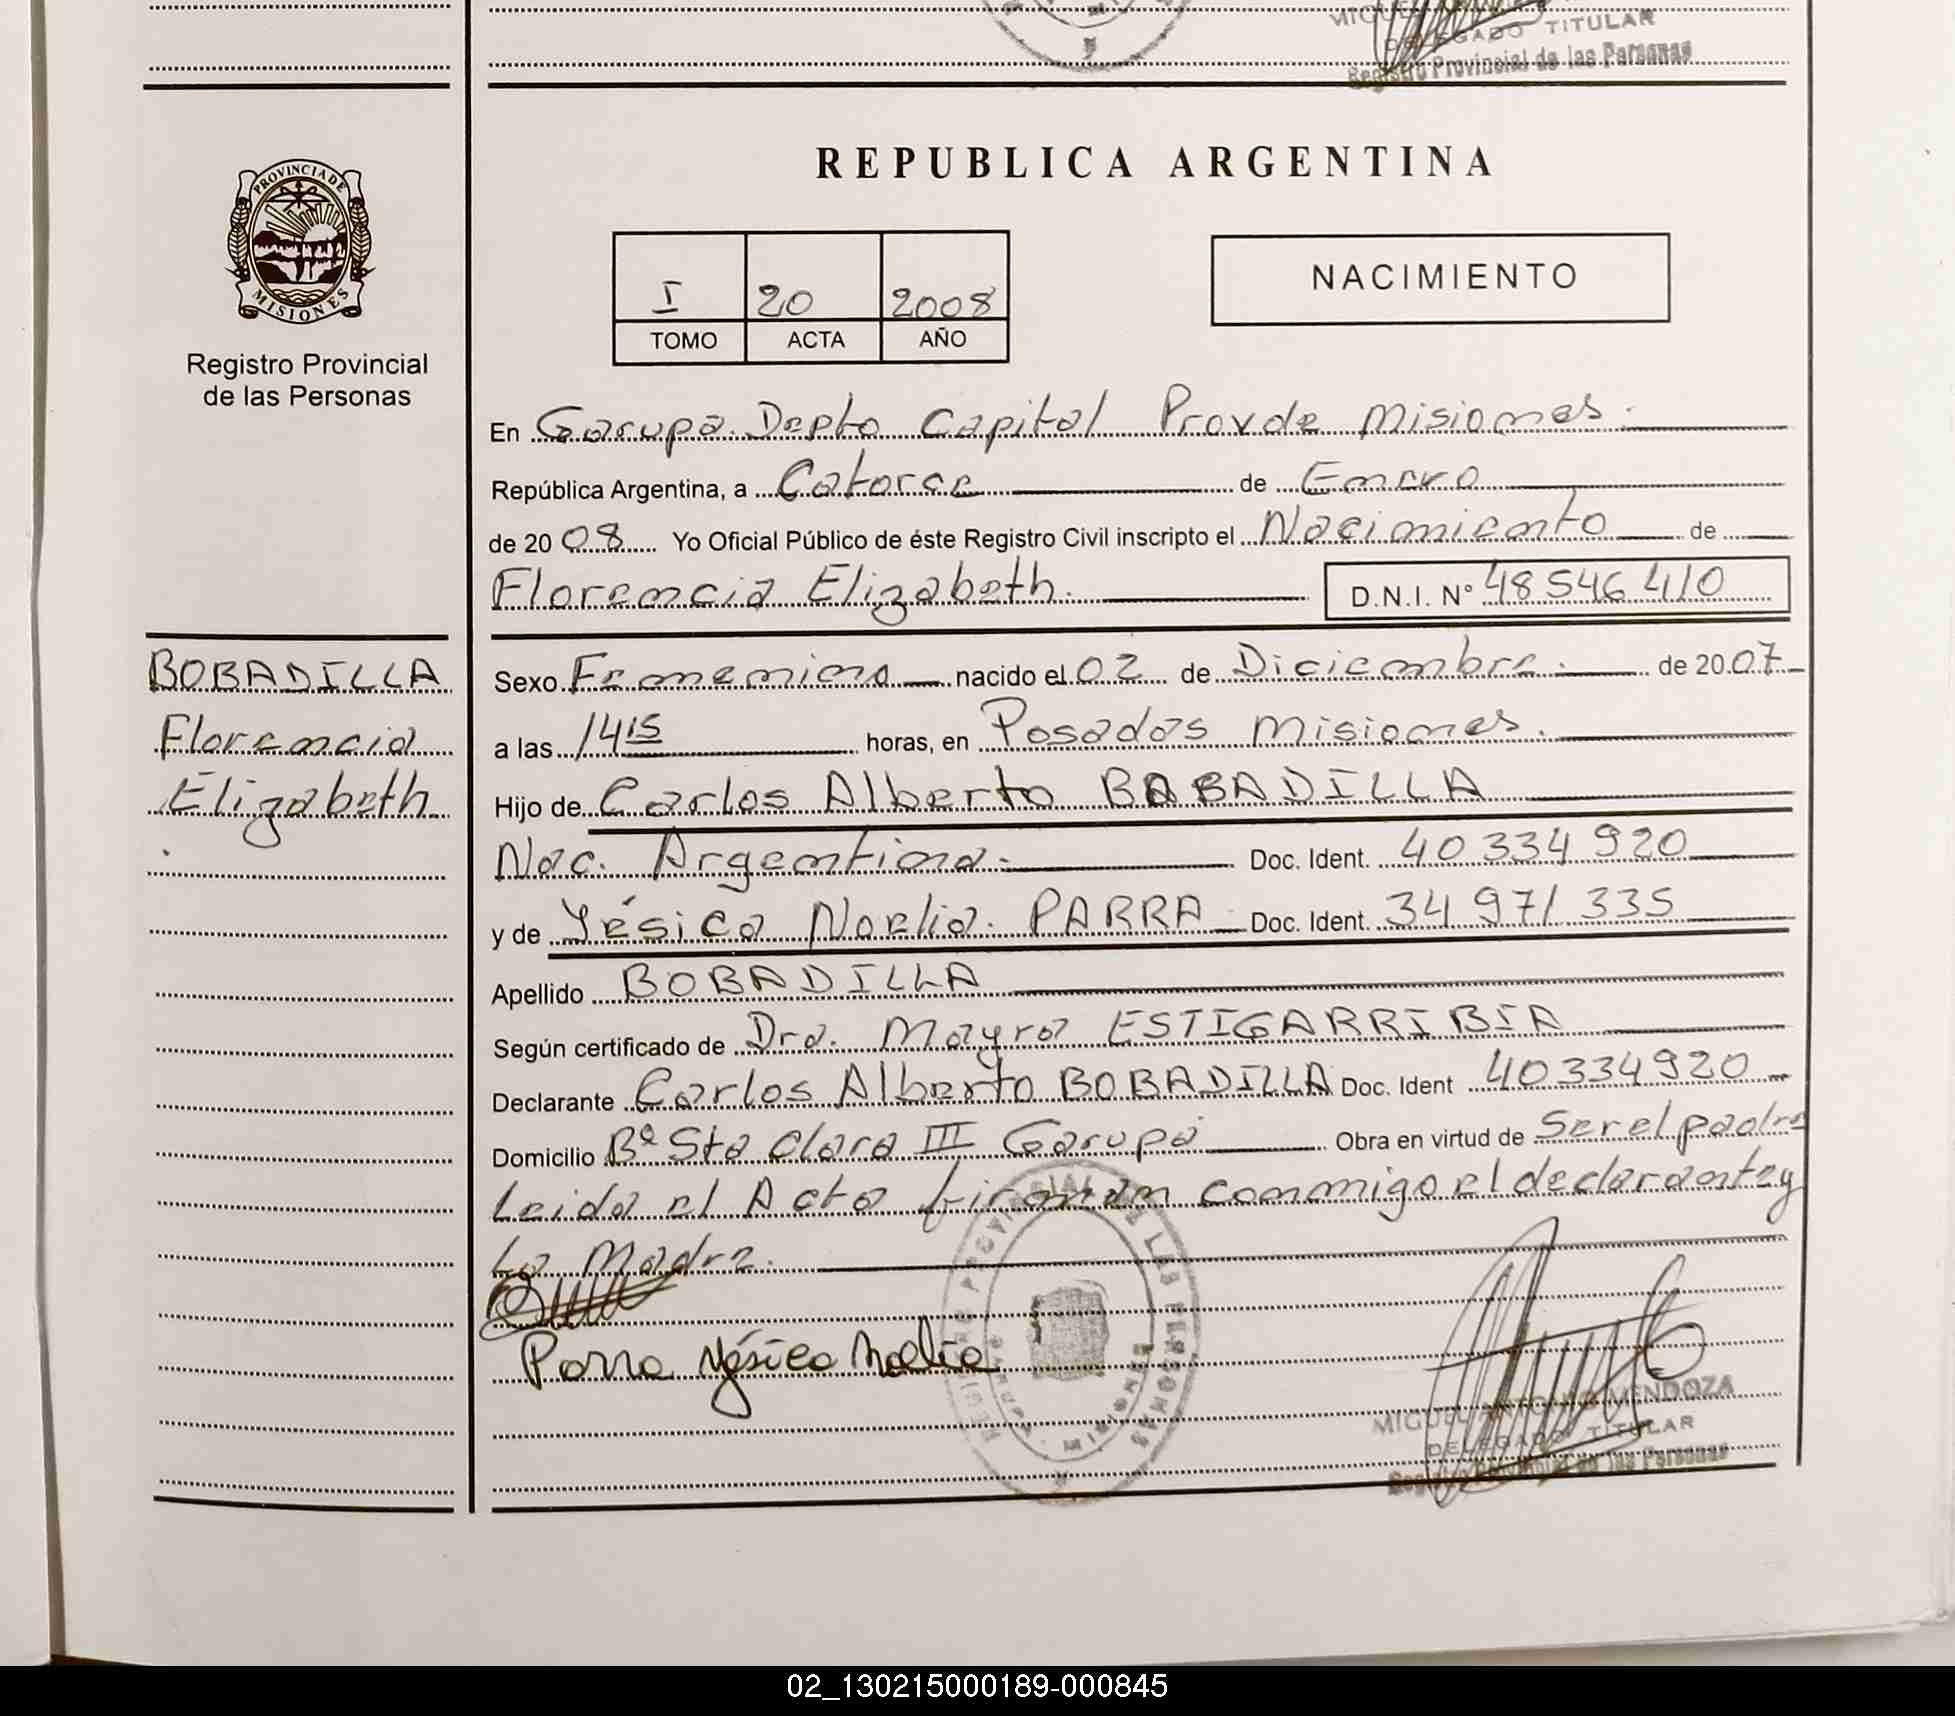 DELEGADO TITULAR
Registro Provincial de las Personas
PROVINCIA DE
MISIONES
Registro Provincial
de las Personas
REPUBLICA ARGENTINA
I 20 2008
TOMO ACTA AÑO
NACIMIENTO
En Garupa Depto Capital Prov de Misiones.
República Argentina, a Catorce de Enero
de 20 08 Yo Oficial Público de éste Registro Civil inscripto el Nacimiento de
Florencia Elizabeth. D.N.I. N° 48546410
BOBADILLA
Florencia
Elizabeth
Sexo Femenino nacido el 02 de Diciembre de 20 07
a las 14 15 horas, en Posadas Misiones.
Hijo de Carlos Alberto BOBADILLA
Nac. Argentina Doc. Ident. 40334920
y de Yésica Noelia PARRA Doc. Ident. 34 971 335
Apellido BOBADILLA
Según certificado de Dra. Mayra ESTIGARRIBIA
Declarante Carlos Alberto BOBADILLA Doc. Ident 40334920
Domicilio Bº Sta Clara III Garupa Obra en virtud de Ser el padre
Leida el Acta firman conmigo el declarante y
La Madre.
Parra Yésica Noelia
REGISTRO PROVINCIAL DE LAS PERSONAS
MISIONES
MIGUEL ANTONIO MENDOZA
DELEGADO TITULAR
Registro Provincial de las Personas
02_130215000189-000845